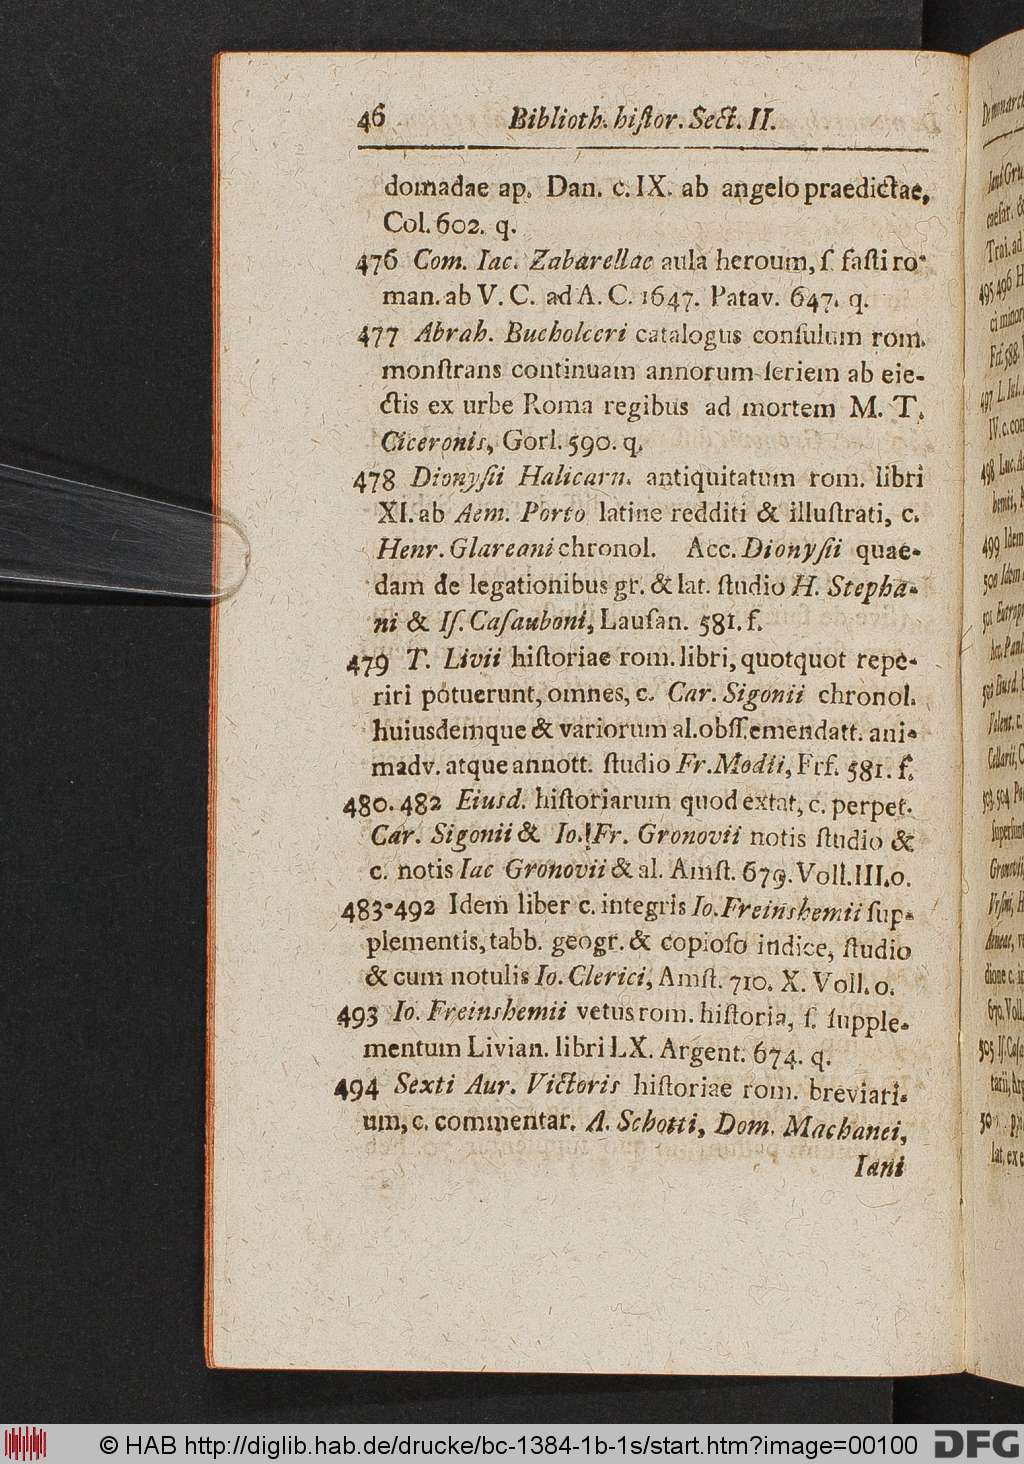 46 Biblioth. hiſtor. Sect. II.
domadae ap. Dan. c. IX. ab angelo praedictae,
Col. 602. q.
476 Com. Iac. Zabarellae aula heroum, ſ faſti ro-
man. ab V. C. ad A. C. 1647. Patav. 647. q.
477 Abrah. Bucholceri catalogus conſulum rom.
monſtrans continuam annorum ſeriem ab eie-
ctis ex urbe Roma regibus ad mortem M. T.
Ciceronis, Gorl. 590. q.
478 Dionyſii Halicarn. antiquitatum rom. libri
XI. ab Aem. Porto latine redditi & illuſtrati, c.
Henr. Glareani chronol. Acc. Dionyſii quae-
dam de legationibus gr. & lat. ſtudio H. Stepha-
ni & Iſ. Caſauboni, Lauſan. 581. f.
479 T. Livii hiſtoriae rom. libri, quotquot repe-
riri potuerunt, omnes, c. Car. Sigonii chronol.
huiusdemque & variorum al. obſſ. emendatt. ani-
madv. atque annott. ſtudio Fr. Modii, Frf. 581. f.
480. 482 Eiusd. hiſtoriarum quod extat, c. perpet.
Car. Sigonii & Io. Fr. Gronovii notis ſtudio &
c. notis Iac Gronovii & al. Amſt. 679. Voll. III. o.
483-492 Idem liber c. integris Io. Freinshemii ſup-
plementis, tabb. geogr. & copioſo indice, ſtudio
& cum notulis Io. Clerici, Amſt. 710. X. Voll. o.
493 Io. Freinshemii vetus rom. hiſtoria, ſ. ſupple-
mentum Livian. libri LX. Argent. 674. q.
494 Sexti Aur. Victoris hiſtoriae rom. breviari-
um, c. commentar. A. Schotti, Dom. Machanei,
Iani
© HAB http://diglib.hab.de/drucke/bc-1384-1b-1s/start.htm?image=00100
DFG